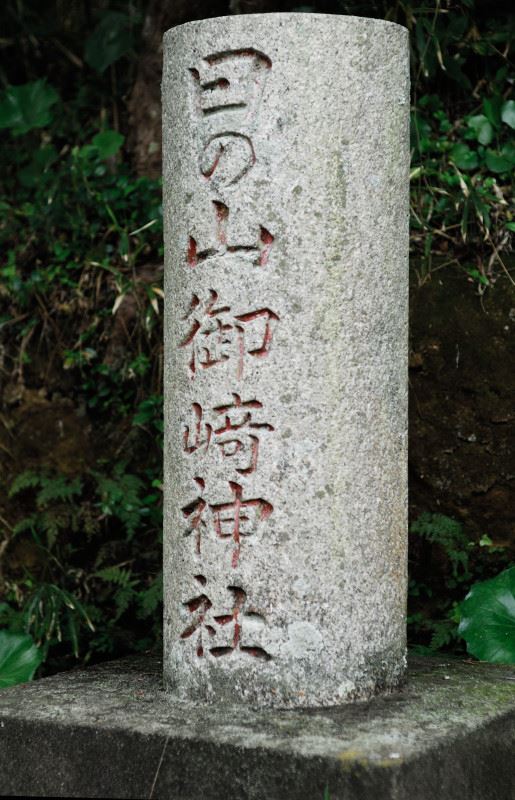 日の山御﨑神社